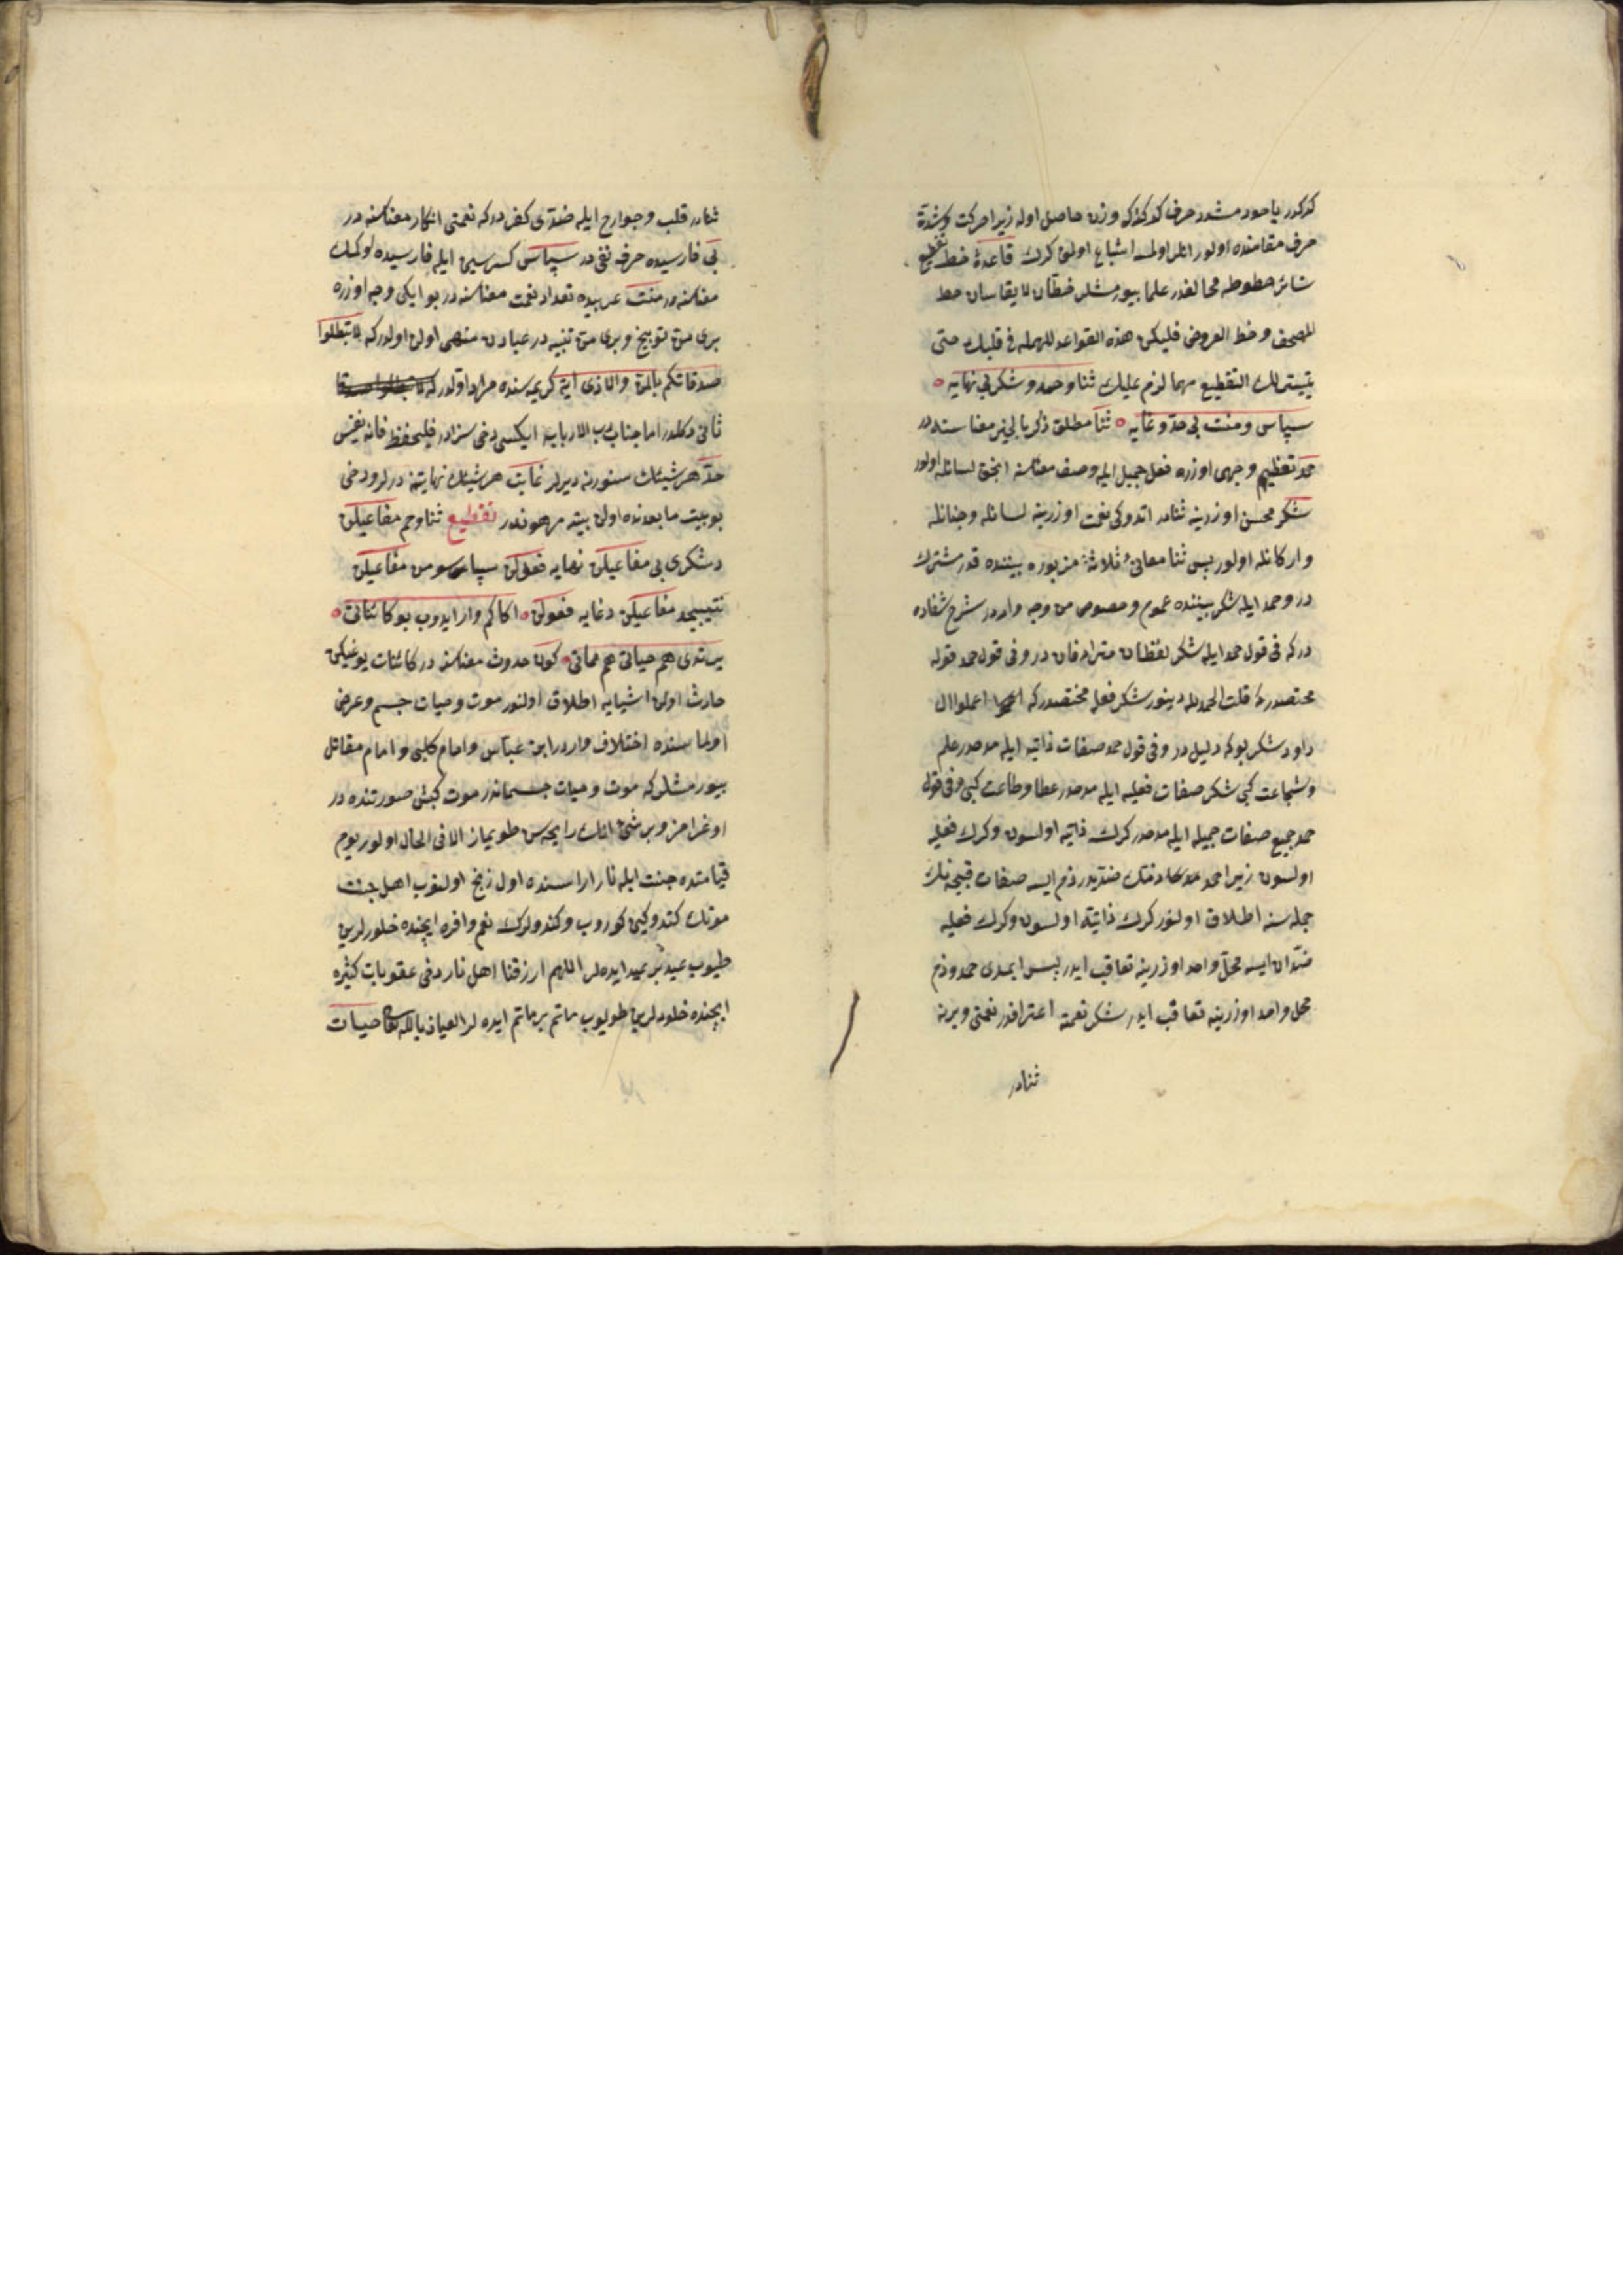 كركدر ياخود مشدد حرف كركدركه وزن حاصل اوله زيرا حركت وشدة
حرف مقامنده اولور انلر اولمسه اشباع اولمق كرك قاعدۀ خط تقطيع
سائر خطوطه مخالفدر علما بيورمشلر خطان لا يقاسان خط
المصحف وخط العروض فليكن هذه القواعد للمهله فى قلبك حتى
يتيسر لك التقطيع مهما لزم عليك ثنا وحمد وشكر بى نهايه
سپاس ومنت بى حد وغايه ثنا مطلق ذكر بالخير معناسنه در
حمد تعظيم وجهى اوزره فعل جميل ايله وصف معناسنه انجق لسانله اولور
شكر محسن اوزرينه ثنادر اتدوكى نعمت اوزرينه لسانله وجنانله
واركانله اولور پس ثنا معانئ ثلاثۀ مزبوره بيننده قدر مشترك
در وحمد ايله شكر بيننده عموم وخصوص من وجه واردر شرح شفاده
دركه فى قول حمد ايله شكر لفظان مترادفان در وفى قول حمد قوله
مختصدركه قلت الحمد لله دينور شكر فعله مختصدركه اعملوا ال
داود شكر بوكه دليل در وفى قول حمد صفات ذاتيه ايله در علم
وشجاعت كبى شكر صفات فعليه ايله در عطا وطاعت كبى وفى قول
حمد جميع صفات جميله ايله در كرك ذاتيه اولسون وكرك فعليه
اولسون زيرا حمد ضديدر ذم ايسه صفات قبيحه نك
جمله سنه اطلاق اولنور كرك ذاتيه اولسون وكرك فعليه
ضدان ايسه محل واحد اوزرينه تعاقب ايدر پس ايمدى حمد وذم
محل واحد اوزرينه تعاقب ايدر شكر نعمته اعترافدر نعمتى ويرنه
ثنادر
ثنادر قلب وجوارح ايله ضدى كفردركه نعمتى انكار معناسنه در
بى فارسيده حرف نفى در سپاس كسر سين ايله فارسيده اوكمك
معناسنه در منت عربيده تعداد نعمت معناسنه در بو ايكى وجه اوزره
برى من توبيخ وبرى من تنبيه در عباددن منهى اولان اولدركه لا تبطلوا
صدقاتكم بالمن والاذى ايۀ كريمه سنده مراد اولدركه
ثانى دكلدر اما جناب رب الاربابه ايكسى دخى سزادر فليحفظ فانه نفيس
حد هر شيئك سنورينه ديرلر غايت هر شيئك نهايتنه ديرلر ودخى
بو بيت مابعدنده اولان بيته مرهوندر تقطيع ثنا وحم مفاعيلن
دشكرى بى مفاعيلن نهايه فعولن سپاس ومن مفاعيلن
نتيبيحد مفاعيلن دغايه فعولن اكاكم وار ايدوب بو كائناتى
يرتدى هم حياتى هم مماتى كون حدوث معناسنه در كائنات يوغيكن
حادث اولان اشيايه اطلاق اولنور موت وحيات جسم وعرض
اولماسنده اختلاف واردر ابن عباس وامام كلبى وامام مقاتل
بيورمشلركه موت وحيات جسماندر موت كبش صورتنده در
اوغرامز وبر شئ انك رايحه سن طويماز الا فى الحال اولور يوم
قيامتده جنت ايله نار اراسنده اول ذبح اولنوب اهل جنت
موتك كتدوكين كوروب وكندولرك نعم وافره ايچنده خلودلرين
طيوب عيد بر عيد ايده لر اللهم ارزقنا اهل نار دخى عقوبات كثيره
ايچنده خلودلرين طويوب ماتم بر ماتم ايده لر العياذ بالله تعالى حيات